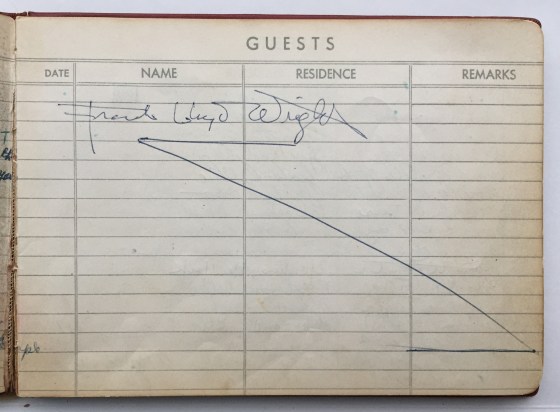 GUESTS
DATE NAME RESIDENCE REMARKS
Frank Lloyd Wright